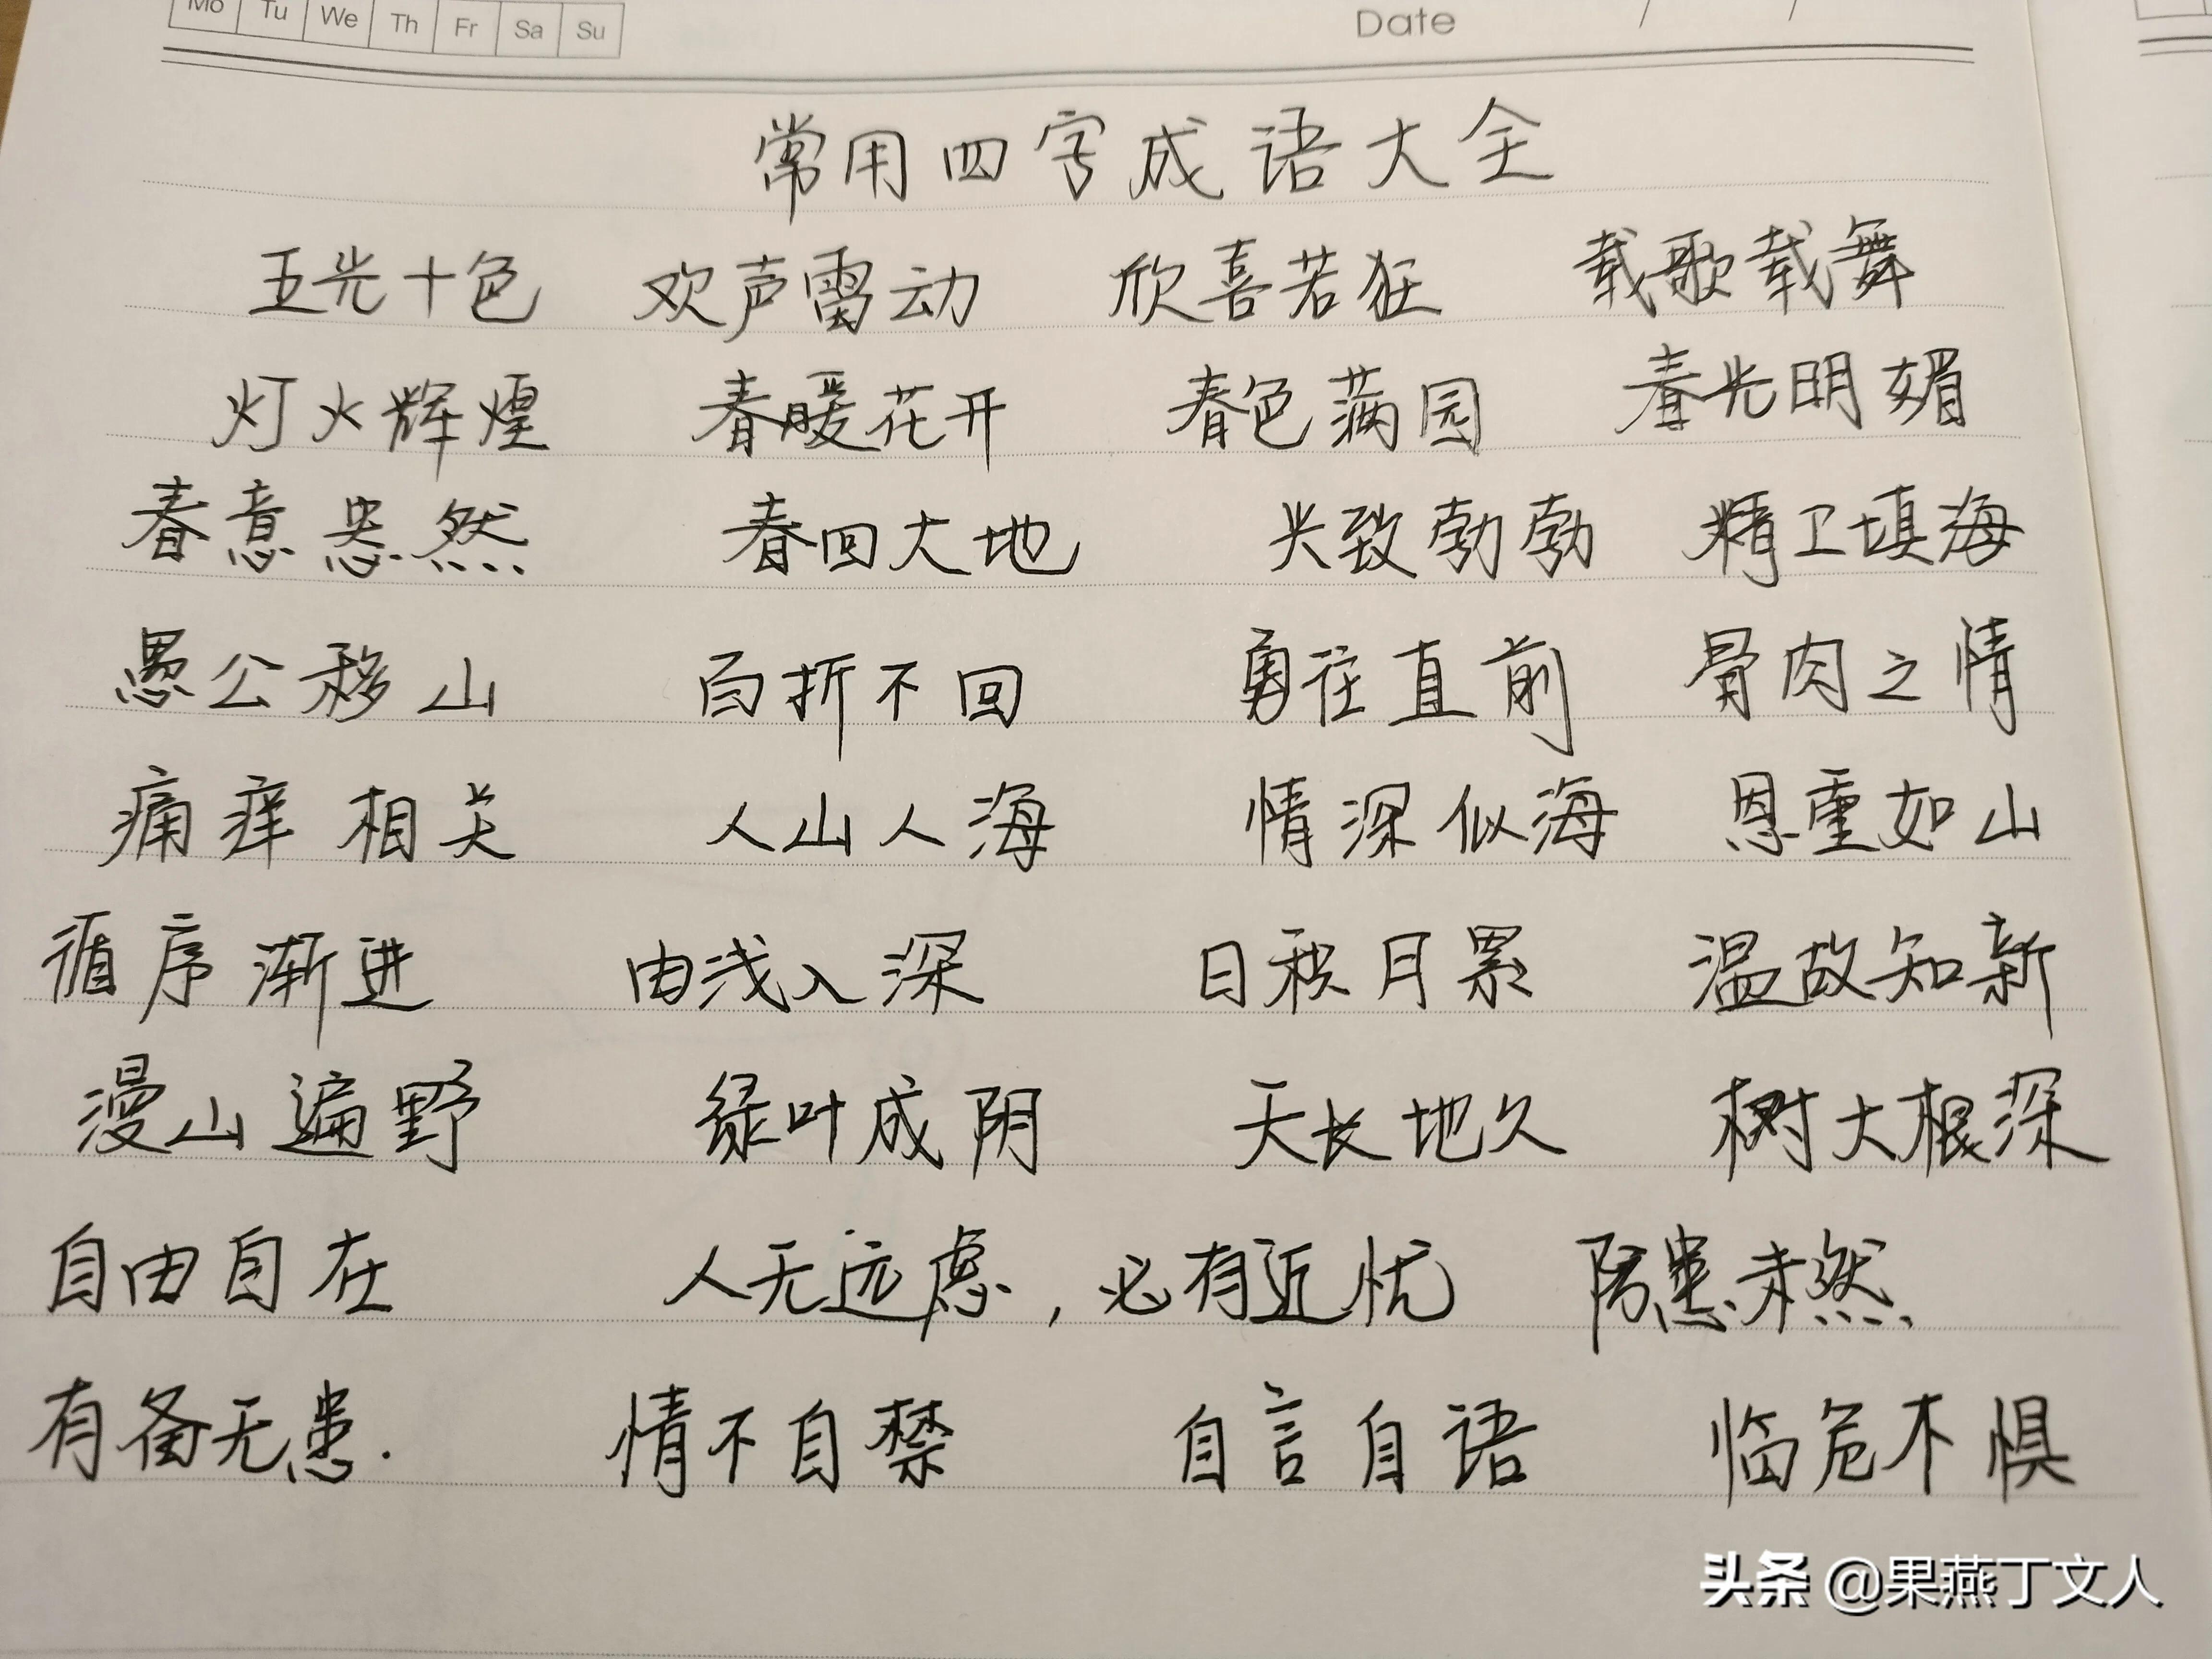 Mo Tu We Th Fr Sa Su Date / /
常用四字成语大全
五光十色 欢声雷动 欣喜若狂 载歌载舞
灯火辉煌 春暖花开 春色满园 春光明媚
春意盎然 春回大地 兴致勃勃 精卫填海
愚公移山 百折不回 勇往直前 骨肉之情
痛痒相关 人山人海 情深似海 恩重如山
循序渐进 由浅入深 日积月累 温故知新
漫山遍野 绿叶成阴 天长地久 树大根深
自由自在 人无远虑，必有近忧 防患未然
有备无患. 情不自禁 自言自语 临危不惧
头条 @果燕丁文人